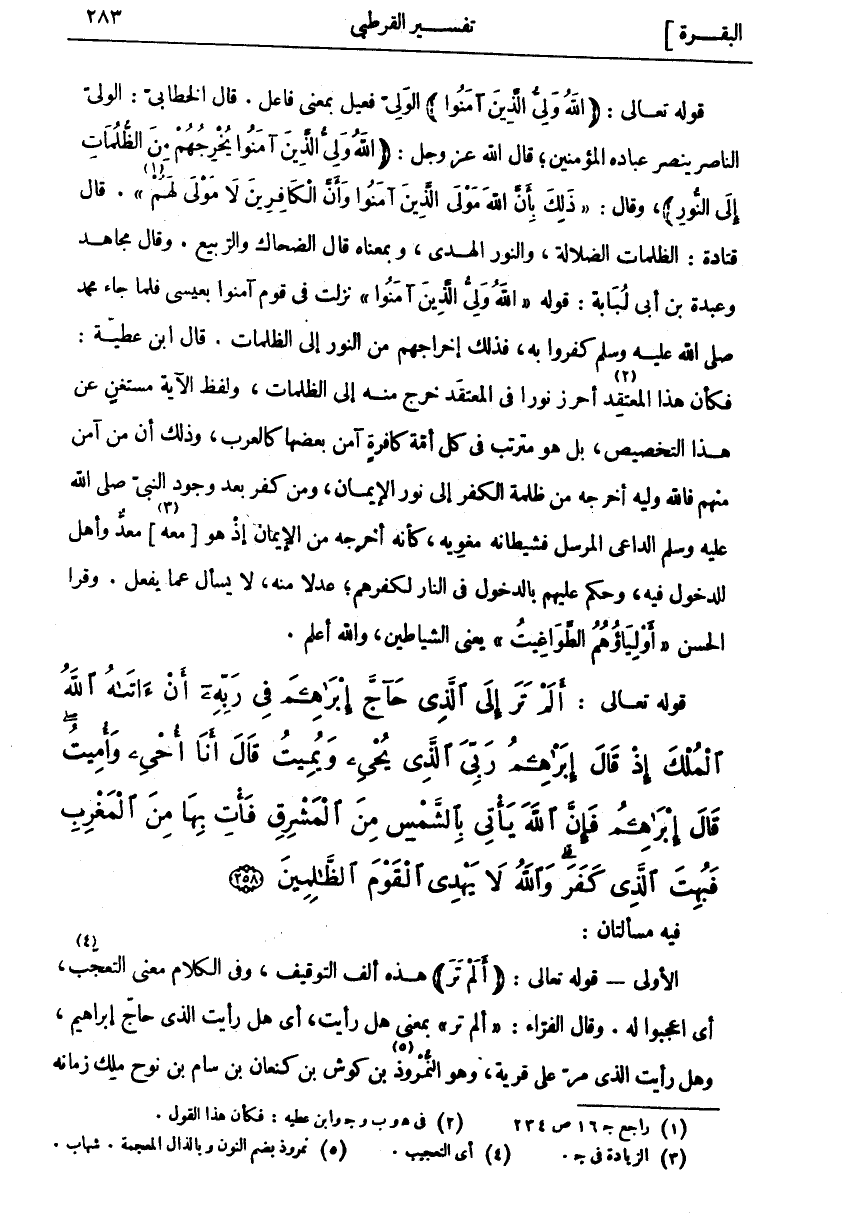 البقـــرة ] تفســـير القرطبى ٢٨٣
قوله تعـالى : ﴿ اللَّهُ وَلِيُّ الَّذِينَ آمَنُوا ﴾ الوَلِىّ فعيل بمعنى فاعل . قال الخطابىّ : الولىّ
الناصر ينصر عباده المؤمنين؛ قال الله عز وجل : ﴿ اللَّهُ وَلِيُّ الَّذِينَ آمَنُوا يُخْرِجُهُمْ مِنَ الظُّلُمَاتِ
إِلَى النُّورِ ﴾، وقال : « ذَلِكَ بِأَنَّ اللهَ مَوْلَى الَّذِينَ آمَنُوا وَأَنَّ الْكَافِرِينَ لَا مَوْلَى لَهُمْ (١) » . قال
قتادة : الظلمات الضلالة ، والنور الهـدى ، وبمعناه قال الضحاك والربيع . وقال مجاهـد
وعبدة بن أبى لُبَابة : قوله « اللَّهُ وَلِيُّ الَّذِينَ آمَنُوا » نزلت فى قوم آمنوا بعيسى فلما جاء محمد
صلى الله عليـه وسلم كفروا به، فذلك إخراجهم من النور إلى الظلمات . قال ابن عطيـة :
فكأن هذا المعتقِد (٢) أحرز نورا فى المعتقَد خرج منـه إلى الظلمات ، ولفظ الآية مستغنٍ عن
هـذا التخصيص، بل هو مترتب فى كل أمّة كافرةٍ آمن بعضها كالعرب، وذلك أن من آمن
منهم فالله وليه أخرجه من ظلمة الكفر إلى نور الإيمـان، ومن كفر بعد وجود النبىّ صلى الله
عليه وسلم الداعى المرسل فشيطانه مغويه ، كأنه أخرجه من الإيمان إذْ هو [ معه ] (٣) معدٌّ وأهل
للدخول فيه، وحكم عليهم بالدخول فى النار لكفرهم؛ عدلا منه، لا يسأل عما يفعل . وقرأ
الحسن « أَوْلِيَاؤُهُمُ الطَّوَاغِيتُ » يعنى الشياطين، والله أعلم .
قوله تعـالى : أَلَمْ تَرَ إِلَى ٱلَّذِى حَآجَّ إِبْرَٰهِـۧمَ فِى رَبِّهِۦٓ أَنْ ءَاتَىٰهُ ٱللَّهُ
ٱلْمُلْكَ إِذْ قَالَ إِبْرَٰهِـۧمُ رَبِّىَ ٱلَّذِى يُحْىِۦ وَيُمِيتُ قَالَ أَنَا۠ أُحْىِۦ وَأُمِيتُ ۖ
قَالَ إِبْرَٰهِـۧمُ فَإِنَّ ٱللَّهَ يَأْتِى بِٱلشَّمْسِ مِنَ ٱلْمَشْرِقِ فَأْتِ بِهَا مِنَ ٱلْمَغْرِبِ
فَبُهِتَ ٱلَّذِى كَفَرَ ۗ وَٱللَّهُ لَا يَهْدِى ٱلْقَوْمَ ٱلظَّـٰلِمِينَ ۝٢٥٨
فيه مسألتان :
الأولى — قوله تعالى : ﴿ أَلَمْ تَرَ ﴾ هـذه ألف التوقيف ، وفى الكلام معنى التعجّب (٤) ،
أى اعجبوا له . وقال الفرّاء : « ألم تر » بمعنى هل رأيت، أى هل رأيت الذى حاجّ إبراهيم ،
وهل رأيت الذى مرّ على قرية، وهو النُّمْروذ (٥) بن كوش بن كنعان بن سام بن نوح ملِك زمانه
(١) راجع جـ ١٦ ص ٢٣٤ (٢) فى هـ و ب و جـ وابن عطيه : فكأن هذا القول .
(٣) الزيادة فى جـ . (٤) أى التعجيب . (٥) نمروذ بضم النون وبالذال المعجمة . شهاب .